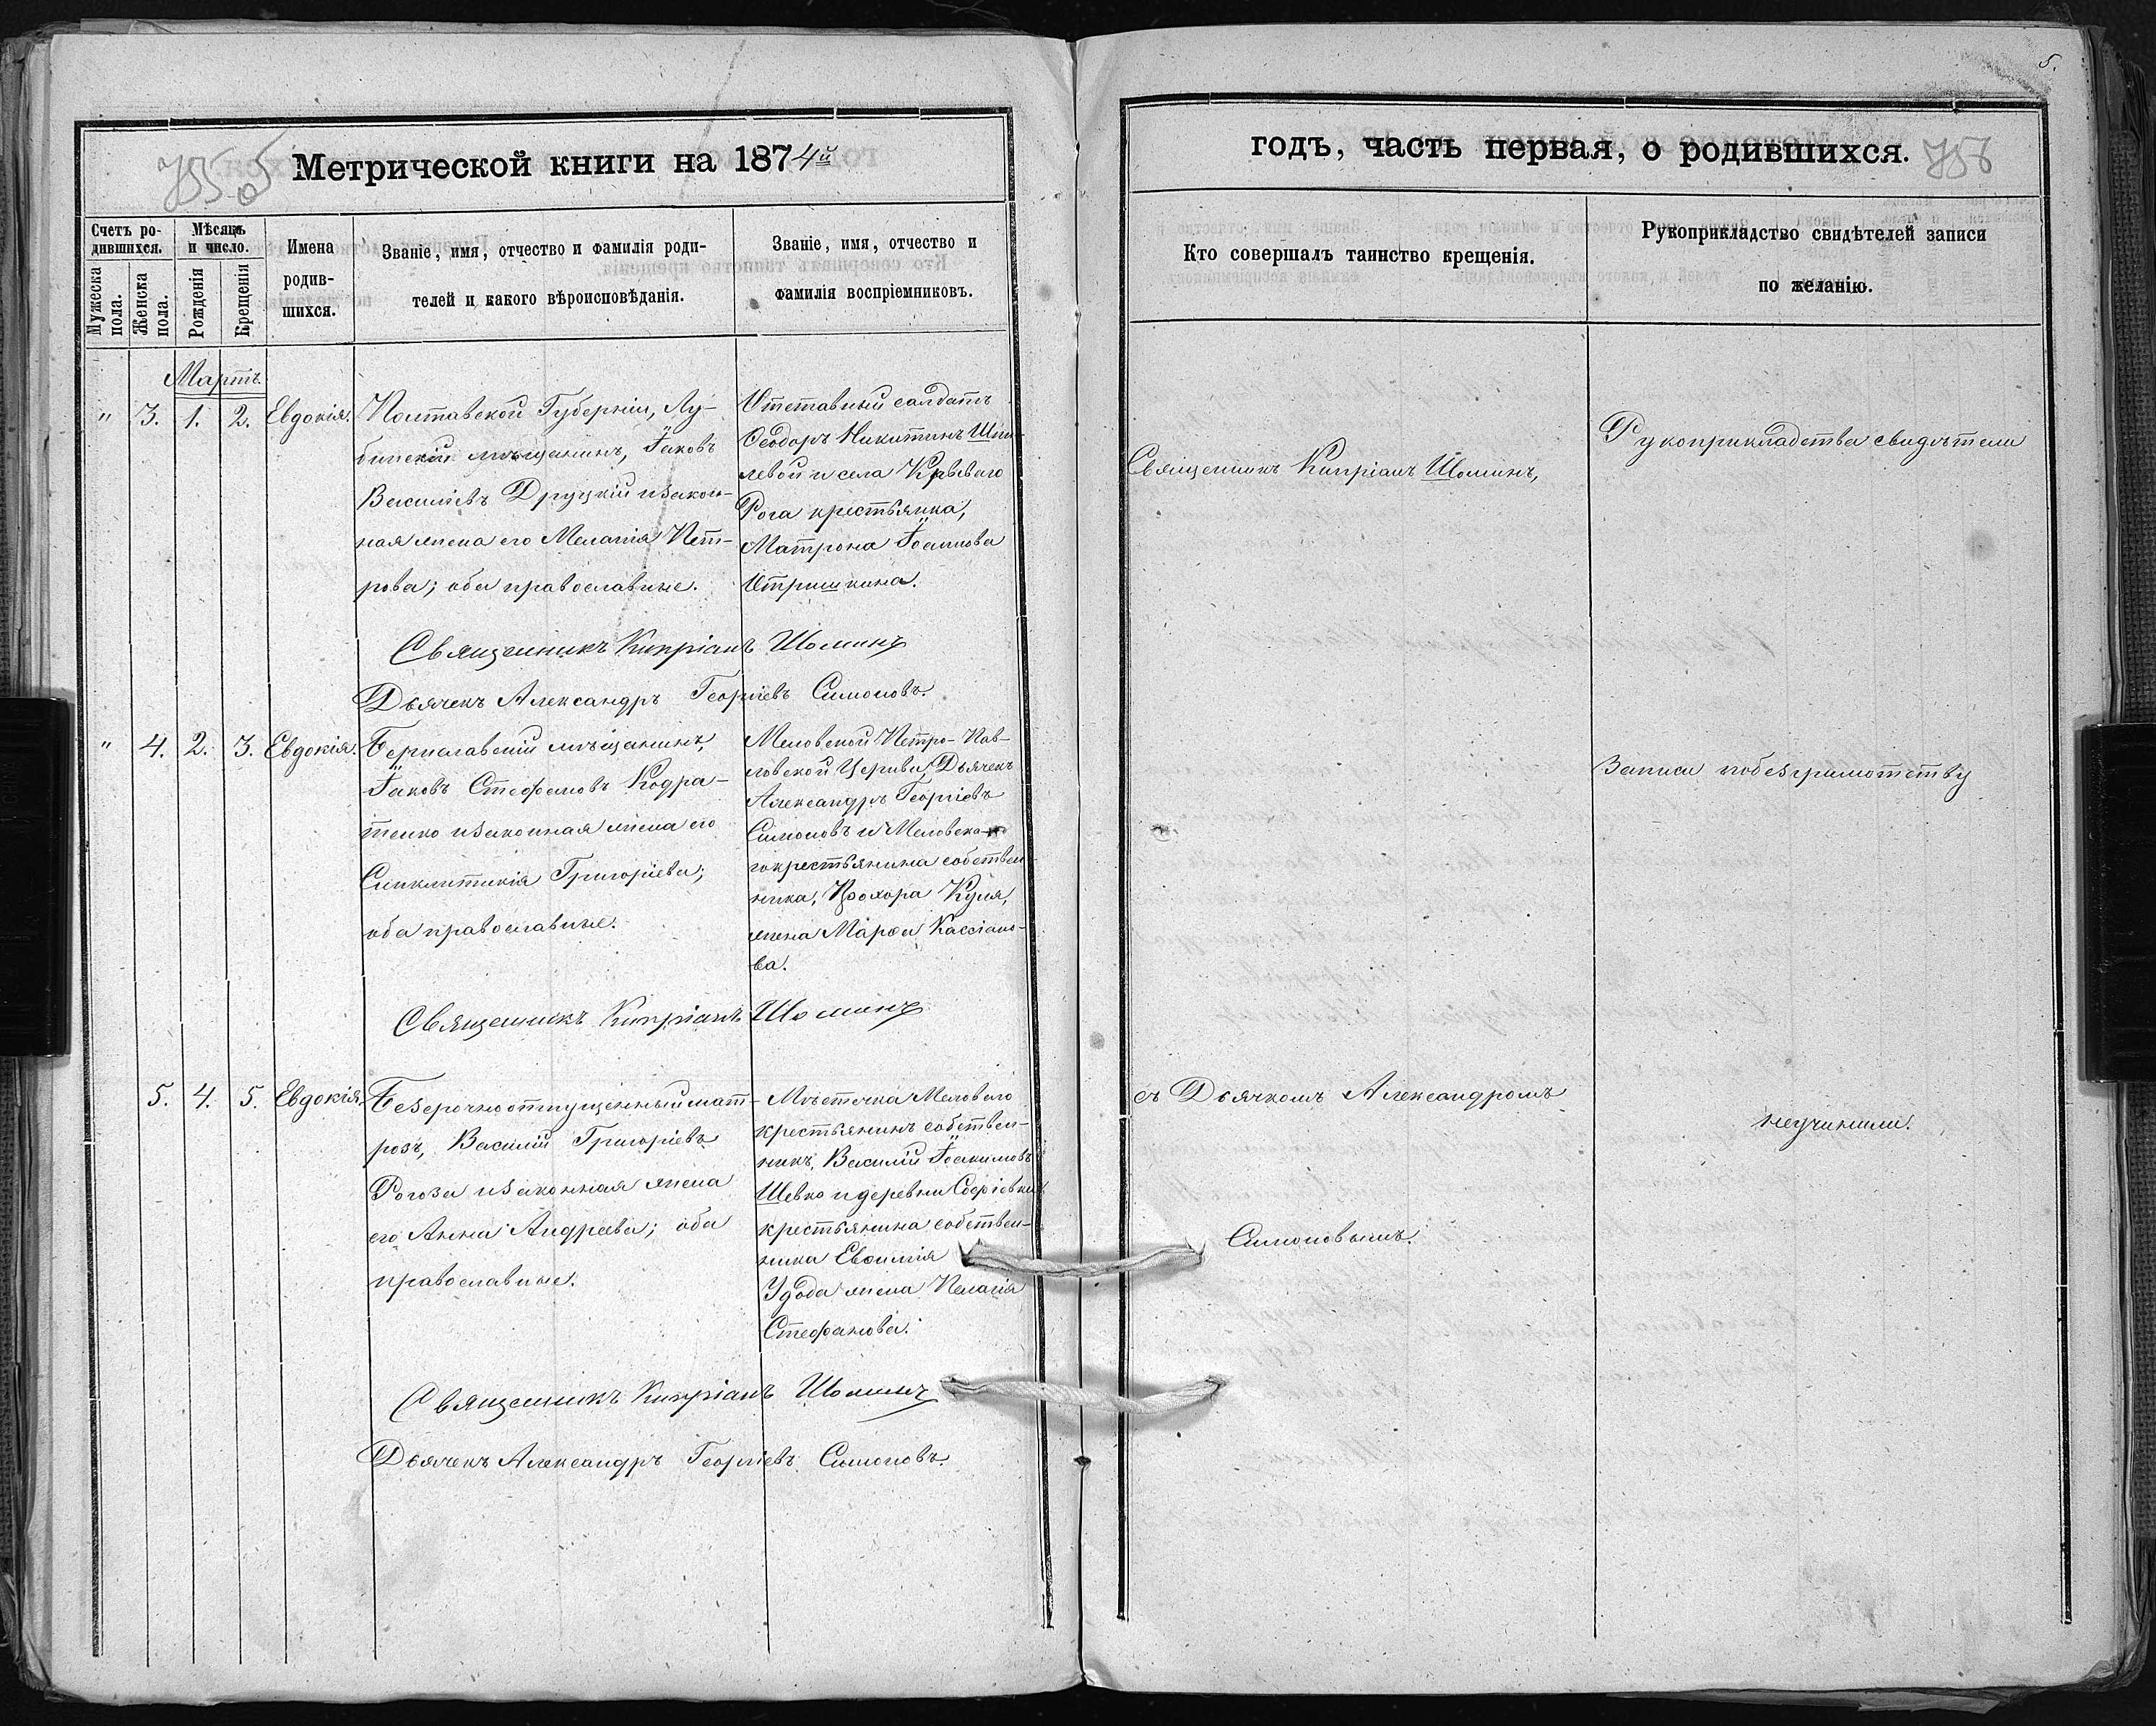 5.
755
Метрической книги на 1874й
годъ, часть первая, о родившихся.
756
Счетъ ро-
дившихся.
Мужеска
пола.
Женска
пола.
Мѣсяцъ
и число.
Рожденія
Крещенія
Имена
родив-
шихся.
Званіе, имя, отчество и фамилія роди-
телей и какого вѣроисповѣданія.
Званіе, имя, отчество и
фамилія воспріемниковъ.
Кто совершалъ таинство крещенія.
Рукоприкладство свидѣтелей записи
по желанію.
Мартъ.
" 3. 1. 2. Евдокія.
Полтавской Губерніи, Лу-
бенскій мѣщанинъ, Іаковъ
Василіевъ Друцкій и закон-
ная жена его Мелатія Пет-
рова; оба православные.
Отставный солдатъ
Ѳеодоръ Никитинъ
левой и села Кривого
Рога крестьянка,
Матрона
Отришкина.
Священникъ Кипріанъ Шоминъ
Дьячекъ Александръ Георгіевъ Симоновъ.
" 4. 2. 3. Евдокія.
Бериславскій мѣщанинъ,
Іаковъ Стефановъ Кодра-
тенко и законная жена его
Синклитикія Григоріева;
оба православные.
Меловской Петро-Пав-
ловской Церкви, Дьячекъ
Александръ Георгіевъ
Симоновъ и Меловска-
го крестьянина собствен-
ника, Прохора Куля,
жена Марѳа Кассіано-
ва.
Священникъ Кипріанъ Шоминъ
5. 4. 5. Евдокія.
Безсрочноотпущенный мат-
росъ, Василій Григоріевъ
Рогоза и законная жена
его Анна Андреева; оба
православные.
Мѣстечка Мелового
крестьянинъ собствен-
никъ, Василій Іоакимовъ
Шевко и деревни Сергіевки
крестьянина собствен-
ника Евѳимія
Удода жена Пелагія
Стефанова.
Священникъ Кипріанъ Шоминъ
Дьячекъ Александръ Георгіевъ Симоновъ.
Священникъ Кипріанъ Шоминъ,
съ Дьячкомъ Александромъ
Симоновымъ.
Рукоприкладства свидѣтели
Записи по безграмотству
неучинили.